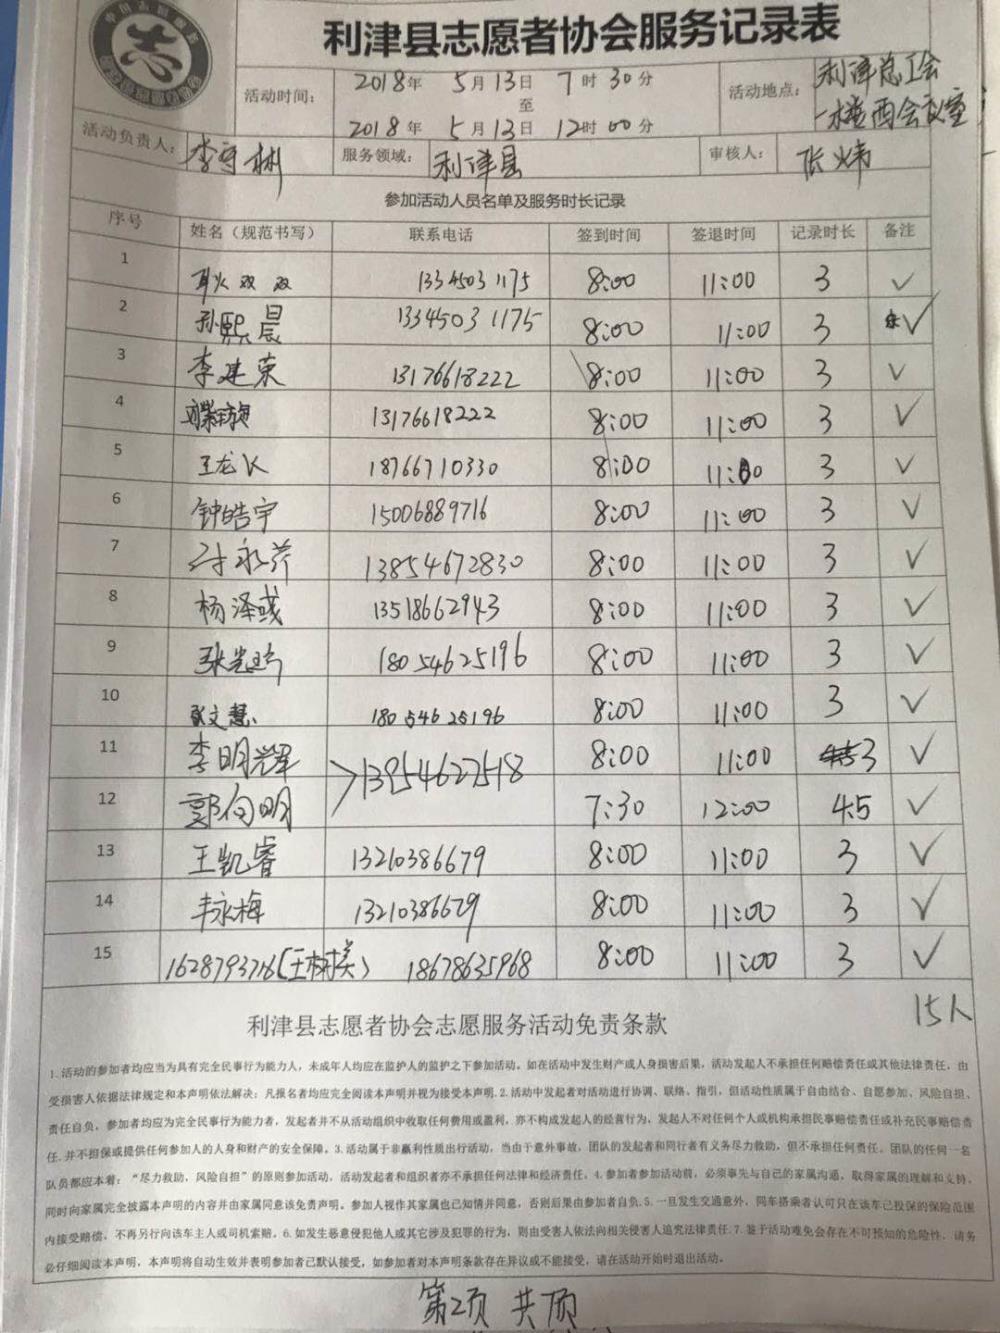 利津县志愿者协会服务记录表
志
活动时间： 2018年 5月13日 7时30分
至
2018年 5月13日 12时00分
活动地点： 利津总工会
一楼西会议室
活动负责人： 李守彬 服务领域： 利津县 审核人： 张炜
参加活动人员名单及服务时长记录
序号 姓名（规范书写） 联系电话 签到时间 签退时间 记录时长 备注
1 耿双双 13345031175 8:00 11:00 3 ✓
2 孙熙晨 13345031175 8:00 11:00 3 ✓
3 李建荣 13176618222 8:00 11:00 3 ✓
4 13176618222 8:00 11:00 3 ✓
5 王龙飞 18766710330 8:00 11:00 3 ✓
6 钟皓宇 15006889716 8:00 11:00 3 ✓
7 13854672830 8:00 11:00 3 ✓
8 杨泽彧 13518662943 8:00 11:00 3 ✓
9 18054625196 8:00 11:00 3 ✓
10 张文慧 18054625196 8:00 11:00 3 ✓
11 李明辉 13954627518 8:00 11:00 3 ✓
12 郭向明 7:30 12:00 4.5 ✓
13 王凯睿 13210386679 8:00 11:00 3 ✓
14 韦永梅 13210386679 8:00 11:00 3 ✓
15 18678635968 8:00 11:00 3 ✓
15人
利津县志愿者协会志愿服务活动免责条款
1.活动的参加者均应当为具有完全民事行为能力人，未成年人均应在监护人的监护之下参加活动。如在活动中发生财产或人身损害后果，活动发起人不承担任何赔偿责任或其他法律责任，由
受损害人依据法律规定和本声明依法解决；凡报名者均应完全阅读本声明并视为接受本声明.2.活动中发起者对活动进行协调、联络、指引，但活动性质属于自由结合、自愿参加、风险自担、
责任自负。参加者均应为完全民事行为能力者，发起者并不从活动组织中收取任何费用或盈利，亦不构成发起人的经营行为，发起人不对任何个人或机构承担民事赔偿责任或补充民事赔偿责
任.并不担保或提供任何参加人的人身和财产的安全保障。3.活动属于非赢利性质出行活动，当由于意外事故，团队的发起者和同行者有义务尽力救助，但不承担任何责任。团队的任何一名
队员都应本着：“尽力救助，风险自担”的原则参加活动，活动发起者和组织者亦不承担任何法律和经济责任。4.参加者参加活动前，必须事先与自己的家属沟通，取得家属的理解和支持，
同时向家属完全披露本声明的内容并由家属同意该免责声明。参加人视作其家属也已知情并同意，否则后果由参加者自负.5.一旦发生交通意外，同车搭乘者认可只在该车已投保的保险范围
内接受赔偿，不再另行向该车主人或司机索赔。6.如发生恶意侵犯他人或其它涉及犯罪的行为，则由受害人依法向相关侵害人追究法律责任.7.鉴于活动难免会存在不可预知的危险性，请务
必仔细阅读本声明，本声明将自动生效并表明参加者已默认接受，如参加者对本声明条款存在异议或不能接受，请在活动开始时退出活动。
第2页 共 页